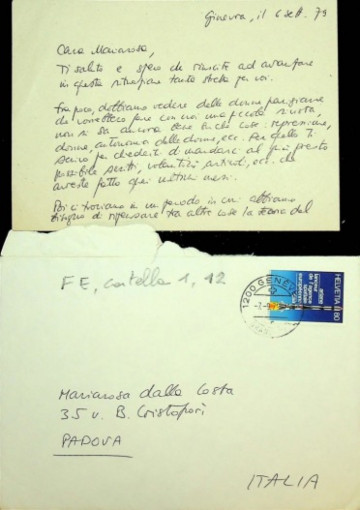 Ginevra, il 6 sett. 79
Cara Mariarosa,
Ti saluto e spero che riuscite ad avanzare
in questa situazione tanto stretta per voi.
Fra poco, dobbiamo vedere delle donne parigiane
che vorrebbero fare con noi una piccola rivista,
non si sa ancora bene su che cosa: repressione,
donne, autonomia delle donne, ecc. Per quello ti
scrivo per chiederti di mandare al più presto
possibile scritti, volantini, articoli, ecc. che
avreste fatto questi ultimi mesi.
Poi ci troviamo in un periodo in cui abbiamo
bisogno di ripensare tra altre cose la teoria del
FE, cartella 1, 12
1200 GENEVE
HELVETIA 80
Mariarosa dalla Costa
35 v. B. Cristofori
PADOVA
ITALIA